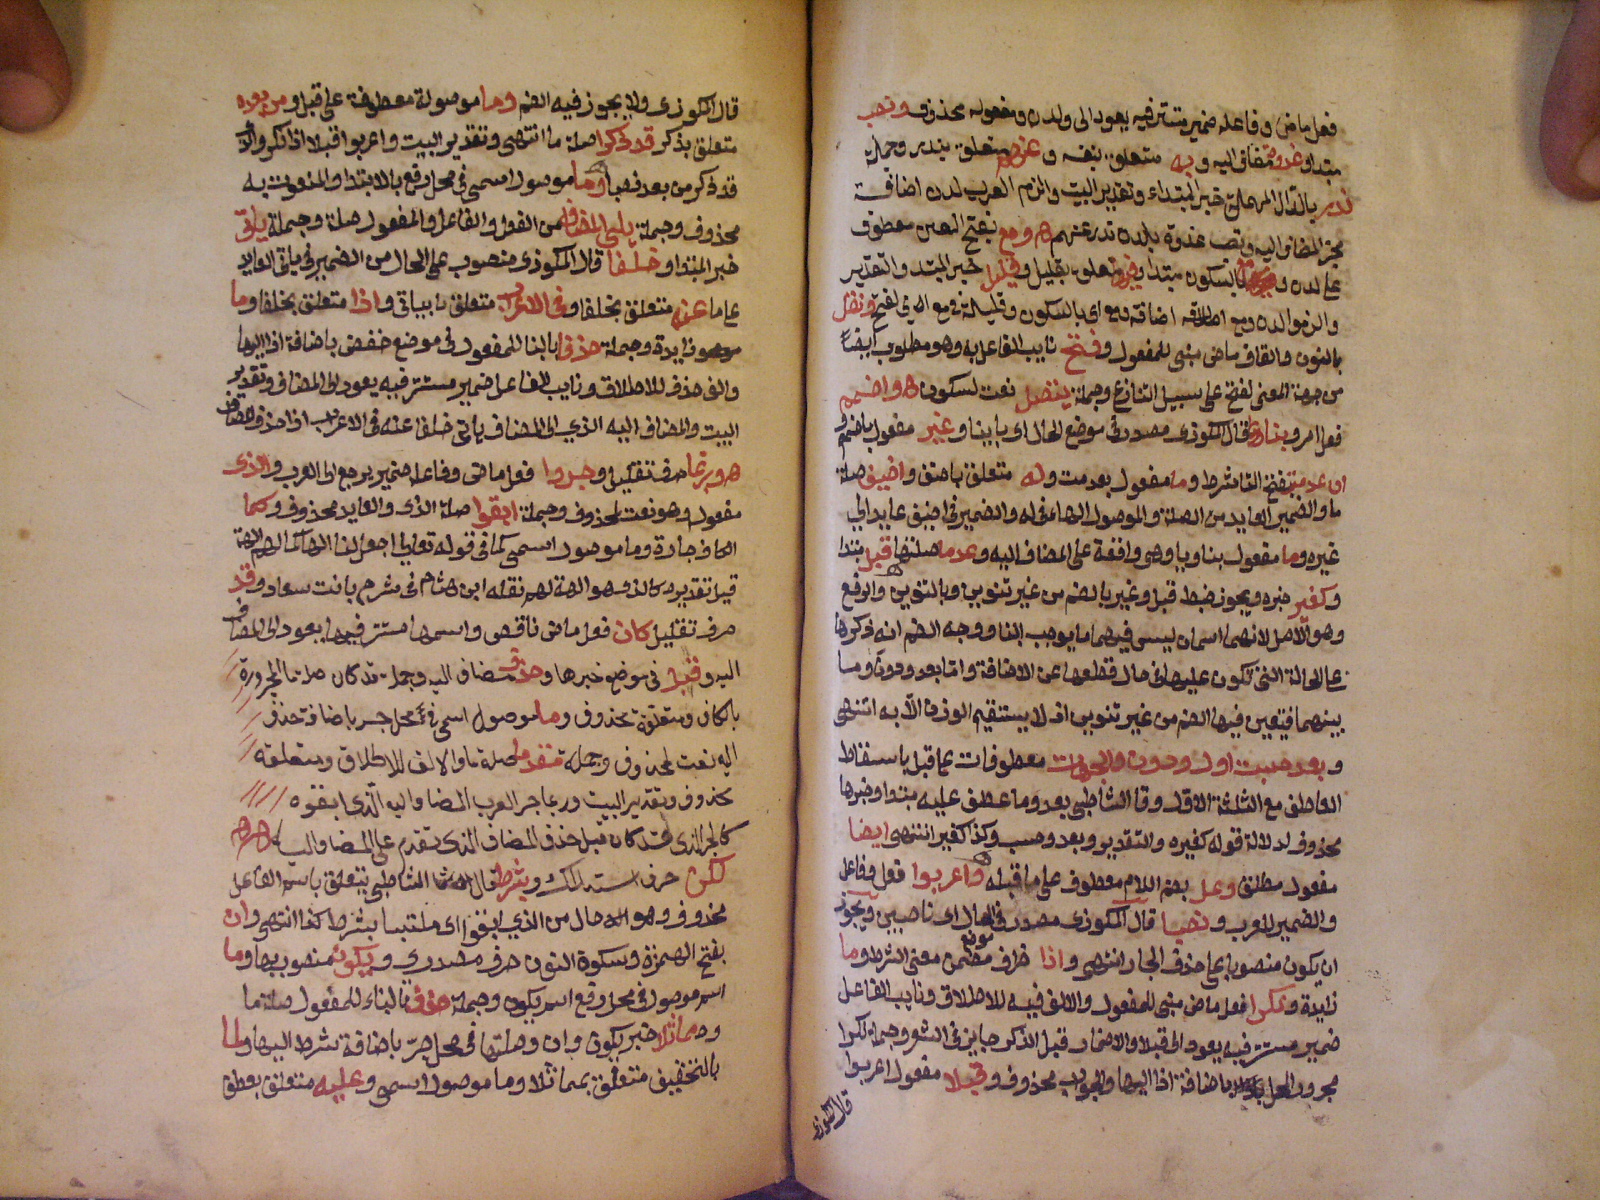 فعل ماض وفاعله ضمير مستتر فيه يعود الى ولدن ومفعوله محذوف ونصب
مبتدا وغدوة مضاف اليه وبه متعلق بنصب وعنهم متعلق بندر وجملة
ندر بالدال المهملة خبر المبتداء وتقدير البيت والزم العرب لدن اضافة
فجر المضاف اليه ونصب غدوة بلدن ندر عنهم ومع بفتح العين معطوف
على لدن ومع بالسكون مبتدا وفيها متعلق بقليل وقليل خبر المبتدا والتقدير
والزموا لدن ومع اضافة ومع اي بالسكون وقليلة في مع الذي لفتح ونقل
بالنون والقاف ماض مبني للمفعول وفتح نايب الفاعل به وهو مطلوب ايضا
من جهة المعنى لفتح على سبيل التنازع وجملة يتصل نعت لسكون واضمم
فعل امر وبناء قال المكودي مصدر في موضع الحال اي بانيا وغير مفعول باضمم و
ان عدمت بفتح التا شرط وما مفعول بعدمت وله متعلق باضيف واضيف صلة
ما والضمير العايد من الصلة والموصول الهاء في له والضمير في اضيف عايد الى
غير وما مفعول بناويا وهي واقعة على المضاف اليه وعدما صلتها قبل مبتدا
وكغير خبره ويجوز ضبط قبل وغير بالضم من غير تنوين وبالتنوين والرفع
وهو الاصل لانهما اسمان ليس فيهما ما يوجب البنا ووجه الضم انه ذكرها
على الحالة التي تكون عليها في حال قطعها عن الاضافة واما بعد ودون وما
بينهما فيتعين فيها الضم من غير تنوين اذ لا يستقيم الوزن الا به انتهى
وبعد حسب اول ودون والجهات معطوفات على قبل باسقاط
العاطف مع الثلثة الاول وقال الشاطبي بعد وما عطف عليه مبتدا وخبرها
محذوف لدلالة قوله كغير والتقدير وبعد وحسب وكذا كغير انتهى ايضا
مفعول مطلق وعل بضم اللام معطوف على ما قبله واعربوا فعل وفاعل
والضمير للعرب ونصبا قال المكودي مصدر في موضع الحال اي ناصبين ويجوز
ان يكون منصوبا على حذف الجار انتهى واذا ظرف مضمن معنى الشرط وما
زايدة ونكرا فعل ماض مبني للمفعول والالف فيه للاطلاق ونايب الفاعل
ضمير مستتر فيه يعود الى قبلا والاضمار قبل الذكر جايز في الشعر وجملة نكرا
مجرورة المحل باضافة اذا اليها والجواب محذوف وقبلا مفعول اعربوا
قال المكودي
قال المكودي ولا يجوز فيه الضم وما موصولة معطوفة على قبل ومن بعده
متعلق بذكر قد ذكرا صلة ما انتهى وتقدير البيت واعربوا قبلا اذا نكر والذي
قد ذكر من بعد نصبا وما موصول اسمي في محل رفع بالابتدا والمنعوت به
محذوف وجملة يلي المضاف من الفعل والفاعل والمفعول صلة وجملة ياتي
خبر المبتدا وخلفا قال المكودي منصوب على الحال من الضمير في ياتي العايد
على ما عنه متعلق بخلفا وفي الاعراب متعلق بياتي واذا متعلق بخلفا وما
زايدة وجملة حذفا بالبنا للمفعول في موضع خفض باضافة اذا اليها
والف حذف للاطلاق ونايب الفاعل ضمير مستتر فيه يعود الى المضاف وتقدير
البيت والمضاف اليه الذي الى المضاف ياتي خلفا عنه في الاعراب اذا حذف المضاف
وربما حرف تقليل وجروا فعل ماض وفاعل ضمير يرجع الى العرب والذي
مفعول وهو نعت لمحذوف وجملة ابقوا صلة الذي والعايد محذوف وكما
الكاف جارة وما موصول اسمي كما في قوله تعالى اجعل لنا الها كما لهم الهة
قيل تقديره كالذي هو الهة لهم نقله ابن هشام في شرح بانت سعاد وقد
حرف تقليل كان فعل ماض ناقص واسمها مستتر فيها يعود الى المضاف
اليه وقبل في موضع خبرها وحذف مضاف اليه وجملة قد كان صلة ما المجرورة
بالكاف ومتعلقة بمحذوف وما موصول اسمي في محل جر باضافة حذف
اليه نعت لمحذوف وجملة تقدما صلة ما والالف للاطلاق ومتعلقه
محذوف وتقدير البيت وربما جر العرب المضاف اليه الذي ابقوه
كالجر الذي قد كان قبل حذف المضاف الذي تقدم على المضاف اليه
لكن حرف استدراك وبشرط قال الشاطبي يتعلق باسم الفاعل
محذوف وهو حال من الذي ابقوا اي ملتبسا بشرط كذا انتهى وان
بفتح الهمزة وسكون النون حرف مصدري ويكون منصوب بها وما
اسم موصول في محل رفع اسم يكون وجملة حذف بالبناء للمفعول صلة ما
ومماثلا خبر يكون وان وصلتها في محل جر باضافة شرط اليها ولما
بالتخفيف متعلق بمماثلا وما موصول اسمي وعليه متعلق بعطف